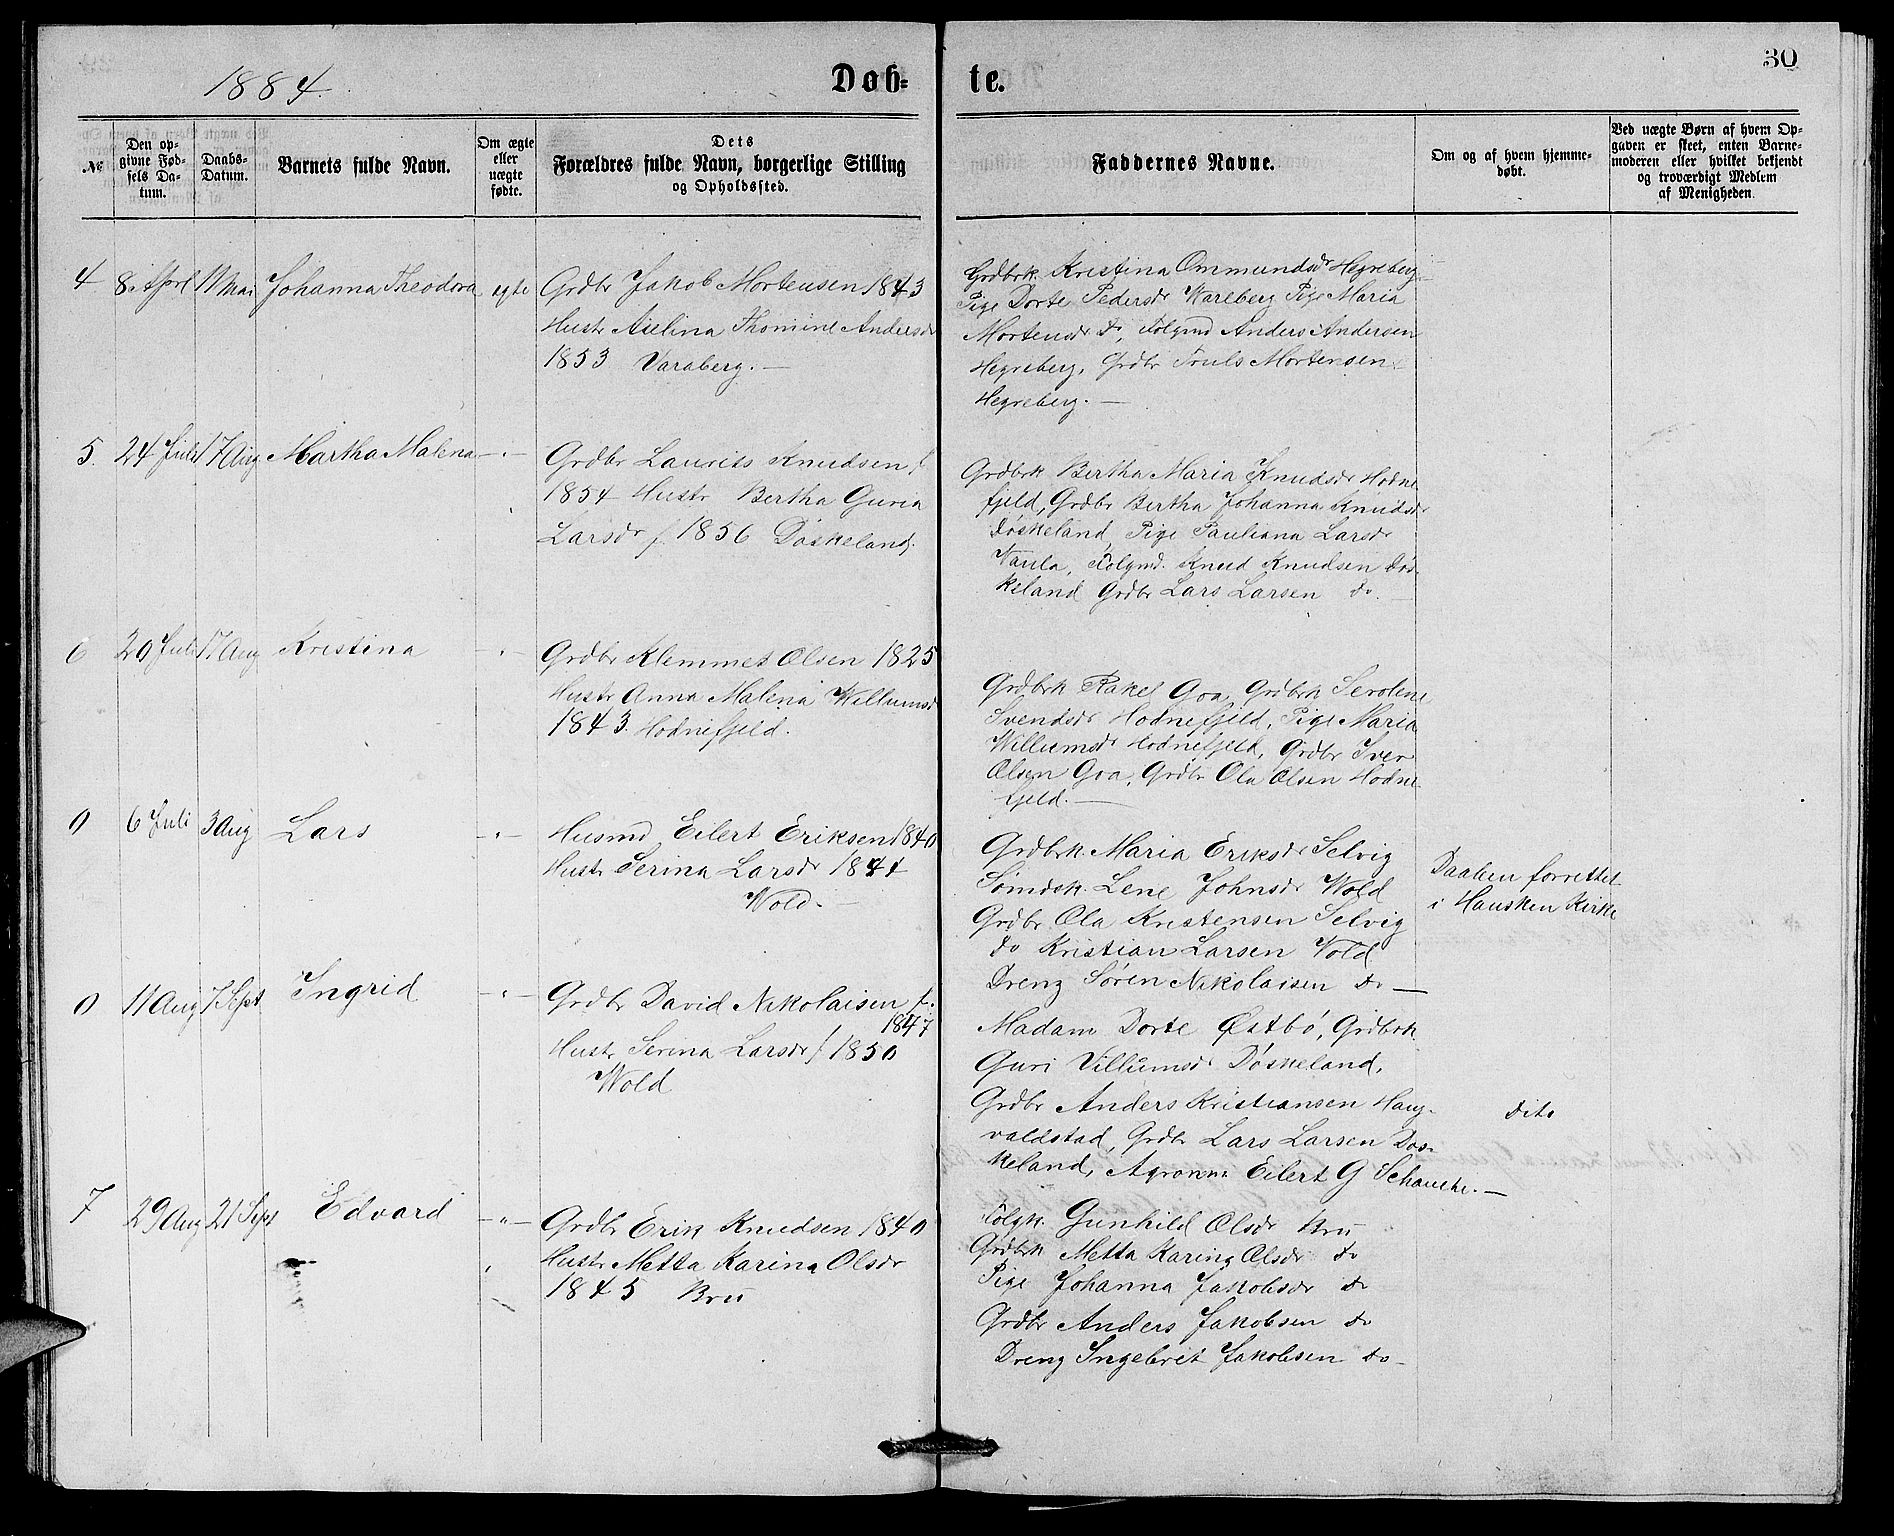 30
1884.
Døb-te.
№
Den opgivne Fødsels Datum.
Daabs-Datum.
Barnets fulde Navn.
Om ægte eller uægte fødte.
Dets Forældres fulde Navn, borgerlige Stilling og Opholdssted.
Faddernes Navne.
Om og af hvem hjemmedøbt.
Ved uægte Børn af hvem Opgaven er skeet, enten Barnemoderen eller hvilket bekjendt og troværdigt Medlem af Menigheden.
4 8. April 11 Mai Johanna Theodora egte
Grdbr Jakob Mortensen 1843
Hustr Aselina Thomine Andersdr
1853 Varaberg. —
Grdbrk. Kristina Ommundsdr Hegreberg
Pige Dorte Pedersdr Wareberg Pige Maria
Mortensdr do, Folgmd Anders Andersen
Hegreberg, Grdbr Truls Mortensen
Hegreberg. —
5. 24 Juli 17 Aug Martha Malena -"-
Grdbr Laurits Knudsen f
1854 Hustr Bertha Guria
Larsdr f. 1856 Døskeland.
Grdbrk Bertha Maria Knudsdr Hodne
fjeld, Grdbr Bertha Johanna Knudsdr
Døskeland, Pige Pauliana Larsdr
Vaula, Folgmd. Knud Knudsen Døs-
keland Grdbr Lars Larsen do. —
6 20 Juli 17 Aug Kristina -"-
Grdbr Klemmet Olsen 1825
Hustr Anna Malena Willumsdr
1843. Hodnefjeld.
Grdbrk Rakel Goa, Grdbrk Serolene
Svendsdr Hodnefjeld, Pige Maria
Willumsdr Hodnefjeld, Grdbr Iver
Olsen Goa, Grdbr Ola Olsen Hodne
fjeld. —
0 6 Juli 3 Aug Lars -"-
Husmd Eilert Eriksen 1840
Hustr Serina Larsdr 1844
Wold. —
Grdbrk. Maria Eriksdr Selvig
Lene Johnsdr Wold
Grdbr Ola Kristensen Selvig
do Kristian Larsen Vold
Dreng Søren Nikolaisen do —
Daaben forrettet
i Hausken Kirke
0 11 Aug 7 Sept. Ingrid -"-
Grdbr David Nikolaisen f.
1847
Hustr Serina Larsdr f 1850
Wold
Madam Dorte Østbø, Grdbrk
Guri Villumsdr Døskeland,
Grdbr Anders Kristiansen Haug-
valdstad, Grdbr Lars Larsen Døs-
keland, Agronom Eilert G Schanche. —
dito
7 29 Aug 21 Sept Edvard -"-
Grdbr Erik Knudsen 1840
Hustr Metta Karina Olsdr
1845 Bru
Folgk. Gunhild Olsdr Bru
Grdbrk Metta Karina Olsdr do
Pige Johanna Jakobsdr do
Grdbr Anders Jakobsen do
Dreng Ingebret Jakobsen do —